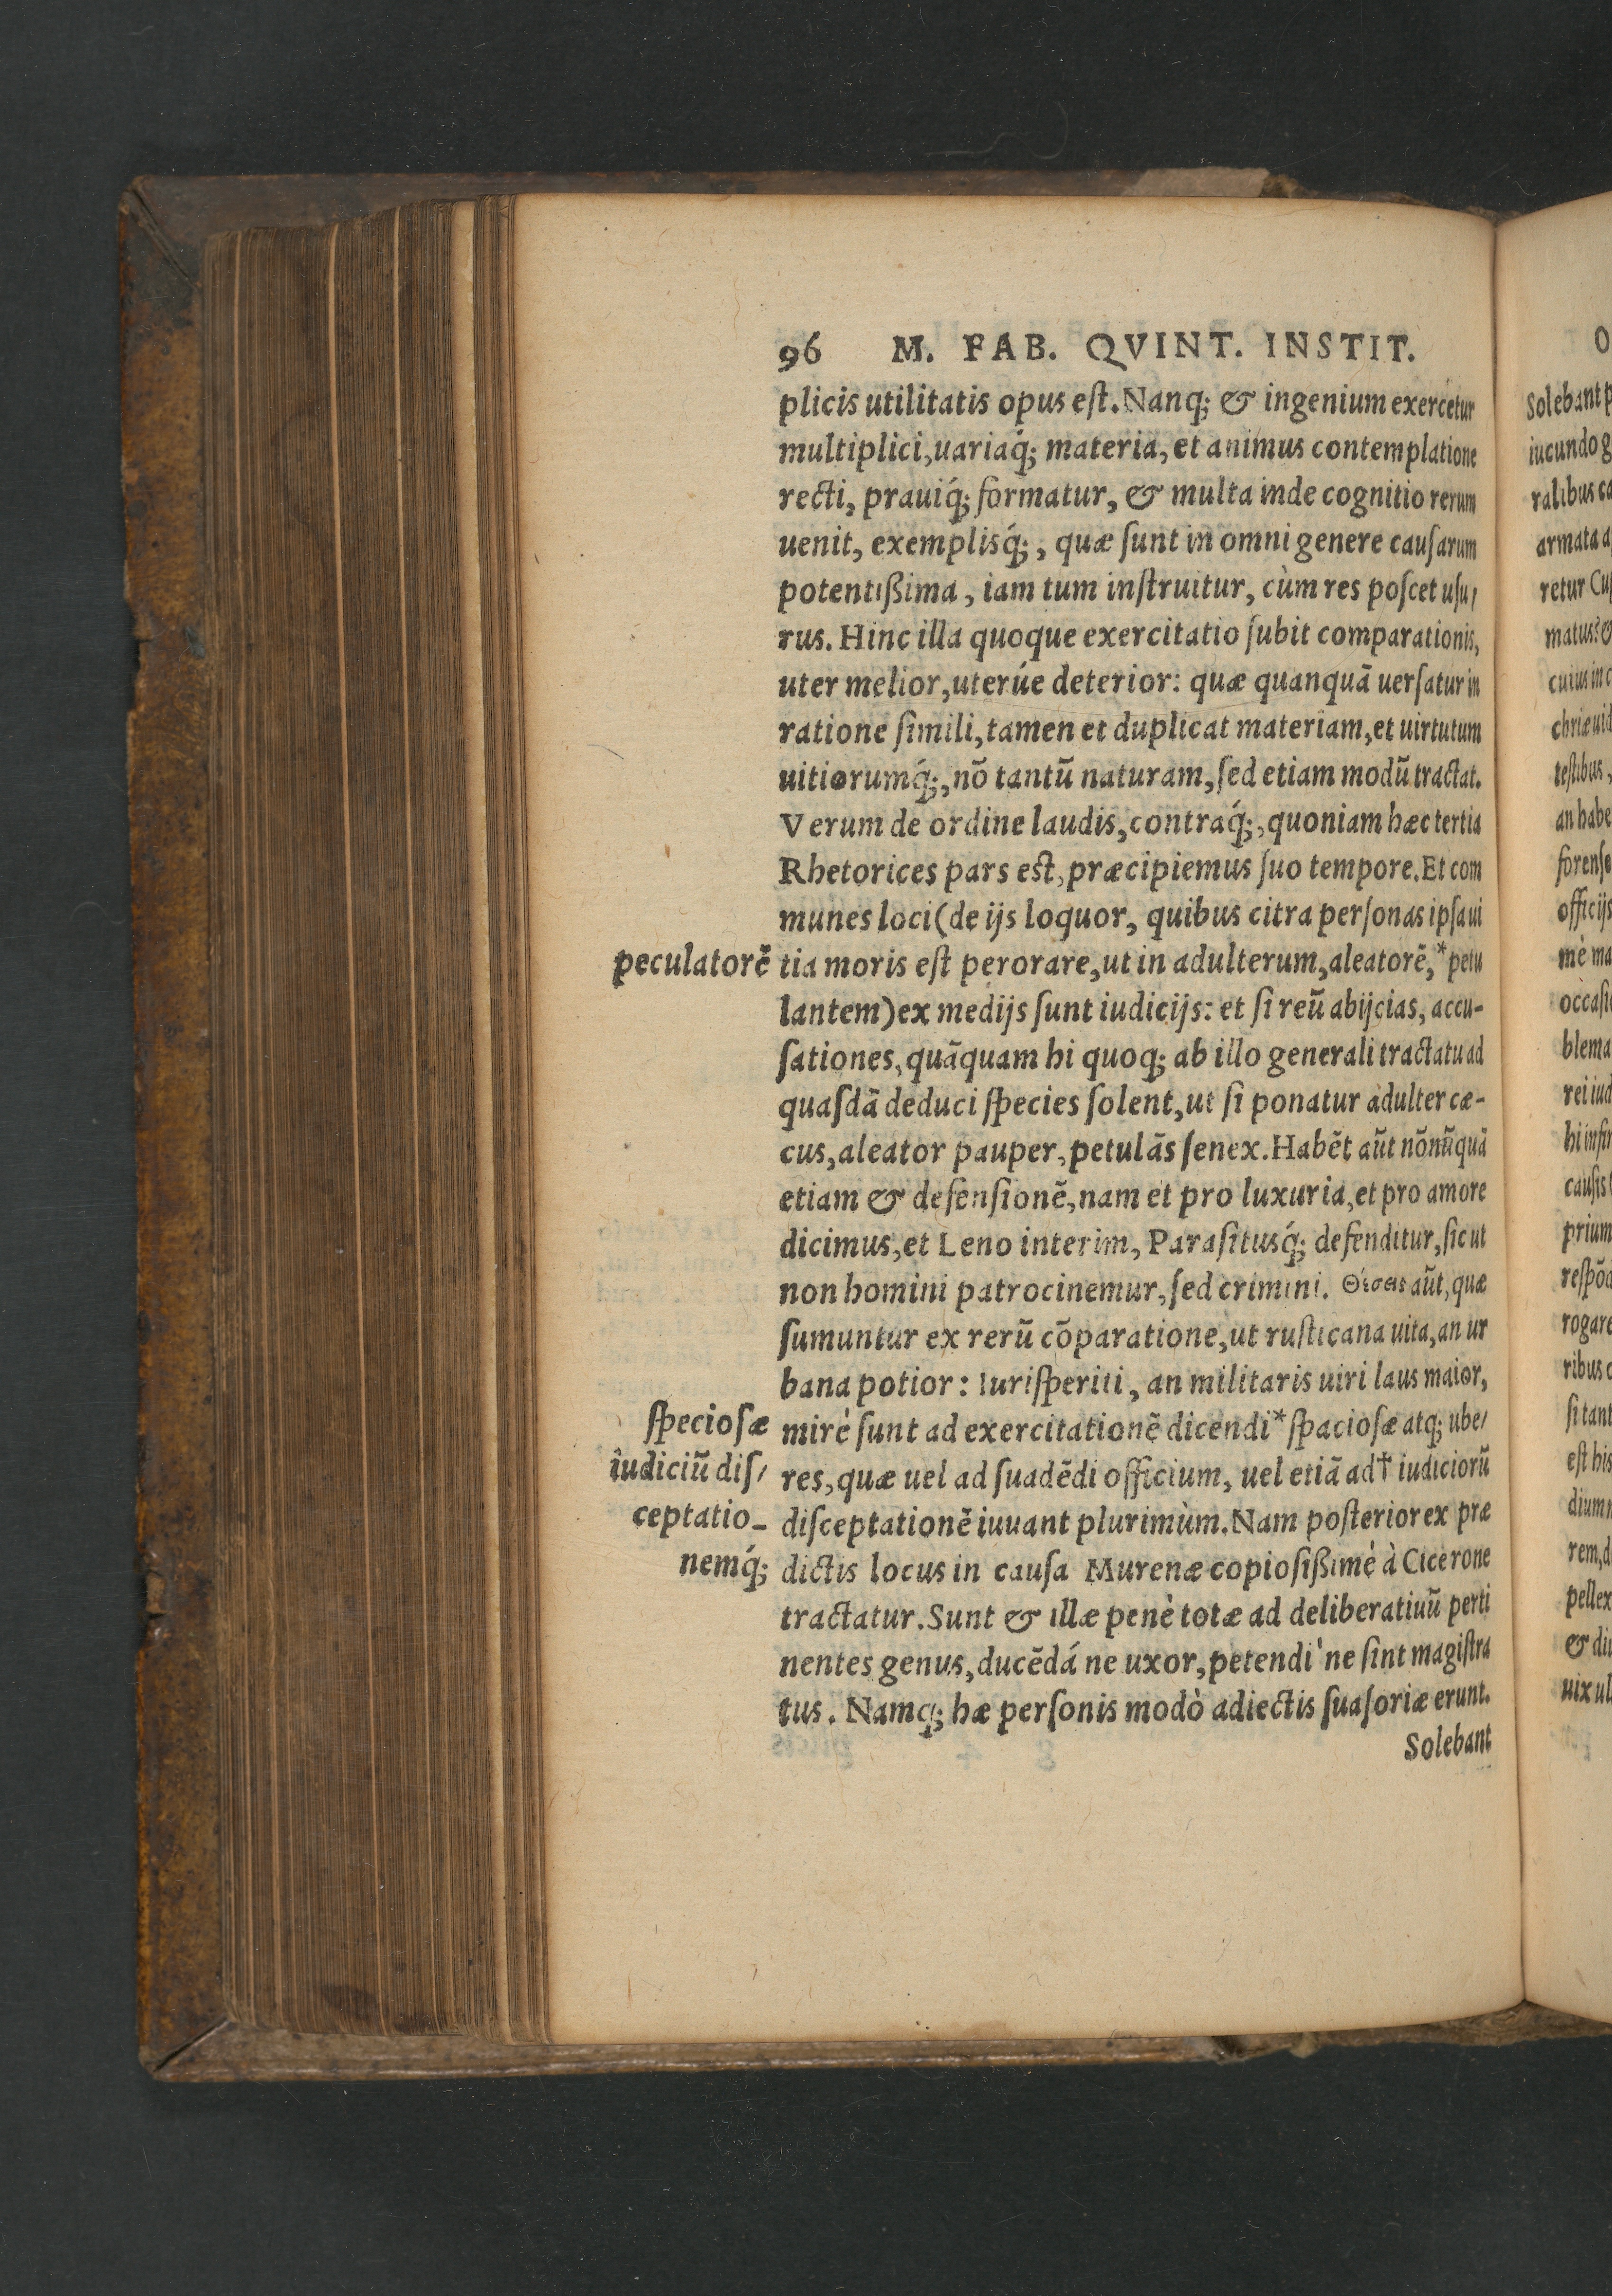 96 M. FAB. QVINT. INSTIT.
plicis utilitatis opus eſt. Nanq; & ingenium exercetur
multiplici, uariaq́; materia, et animus contemplatione
recti, prauiq́; formatur, & multa inde cognitio rerum
uenit, exemplisq́;, quæ ſunt in omni genere cauſarum
potentißima, iam tum inſtruitur, cùm res poſcet uſu/
rus. Hinc illa quoque exercitatio ſubit comparationis,
uter melior, uterúe deterior: quæ quanquā uerſatur in
ratione ſimili, tamen et duplicat materiam, et uirtutum
uitiorumq́;, nō tantū naturam, ſed etiam modū tractat.
Verum de ordine laudis, contraq́;, quoniam hæc tertia
Rhetorices pars est, præcipiemus ſuo tempore. Et com
munes loci (de ijs loquor, quibus citra perſonas ipſa ui
peculatorē
tia moris eſt perorare, ut in adulterum, aleatorē, *petu
lantem) ex medijs ſunt iudicijs: et ſi reū abijcias, accu-
ſationes, quāquam hi quoq; ab illo generali tractatu ad
quaſdā deduci ſpecies ſolent, ut ſi ponatur adulter cæ-
cus, aleator pauper, petulās ſenex. Habēt aūt nōnūquā
etiam & defenſionē, nam et pro luxuria, et pro amore
dicimus, et Leno interim, Paraſitusq́; defenditur, ſic ut
non homini patrocinemur, ſed crimini. Θέσεις aūt, quæ
ſumuntur ex rerū cōparatione, ut ruſticana uita, an ur
bana potior: Iuriſperiti, an militaris uiri laus maior,
ſpecioſæ
mirè ſunt ad exercitationē dicendi *ſpacioſæ atq; ube/
iudiciū diſ/
res, quæ uel ad ſuadēdi officium, uel etiā ad † iudiciorū
ceptatio-
diſceptationē iuuant plurimùm. Nam poſterior ex præ
nemq́;
dictis locus in cauſa Murenæ copioſißimè à Cicerone
tractatur. Sunt & illæ penè totæ ad deliberatiuū perti
nentes genus, ducēdá ne uxor, petendi' ne ſint magiſtra
tus. Namq; hæ perſonis modò adiectis ſuaſoriæ erunt.
Solebant
O
Solebant p
iucundo g
ralibus ca
armata a
retur Cu
matus? &
cuius in c
chriæ uid
teſtibus,
an habe
forenſe
officijs
mè ma
occaſi
blema
rei iud
hi infir
cauſis
prium
reſpōd
rogare
ribus c
ſi tant
eſt his
dium
rem, d
pellex
& diu
uix ul